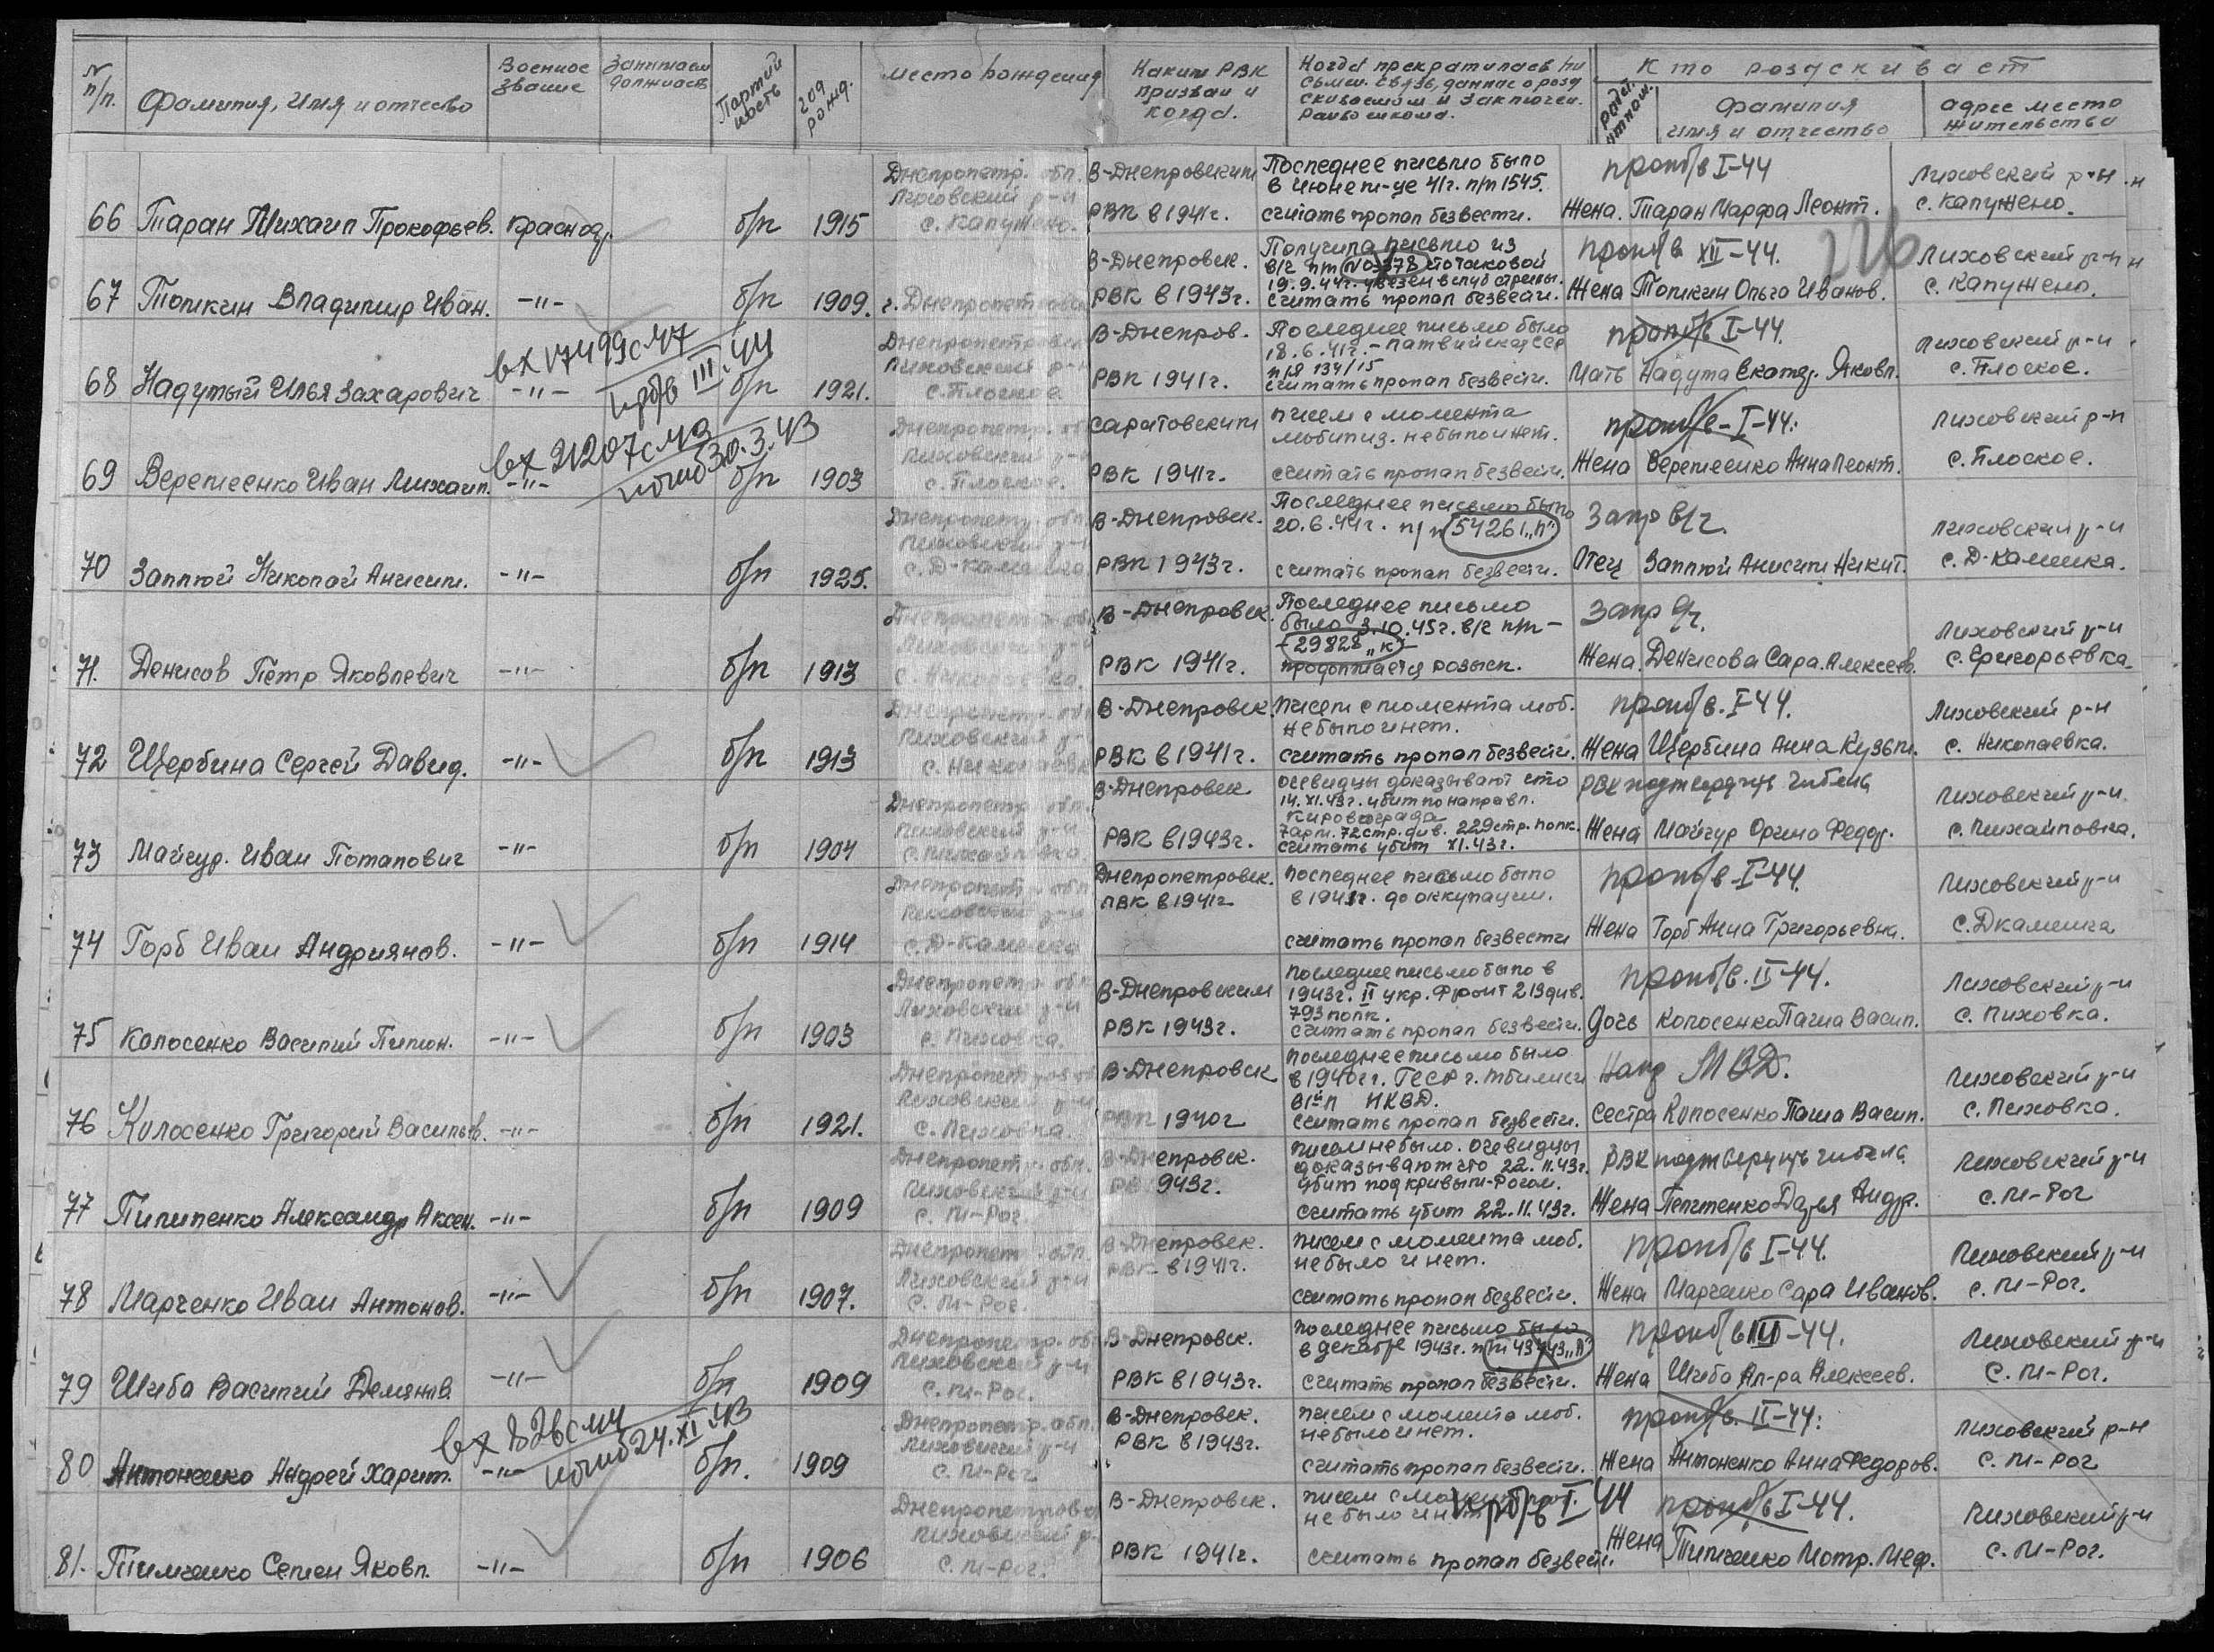 № п/п.
Фамилия, Имя и отчество
Военное звание
Занимаем должность
Партийность
год рожд.
место рождения
Каким РВК призван и когда.
Когда прекратилась письмен. связь, данные о розыскиваемом и заключен. райвоенкома.
Кто розыскивает
фамилия имя и отчество
адрес место жительства
66 Таран Михаил Прокофьев. красноар. б/п 1915
Днепропетр. обл.
Лиховский р-н
с. Капужено.
В-Днепровским
РВК в 1941г.
Последнее письмо было
в июне м-це 41г. п/п 1545.
считать пропал безвести.
проп б/в I-44
Жена. Таран Марфа Леонт.
Лиховский р-н
с. Капужено.
226
67 Толкин Владимир Иван. -"- б/п 1909. г. Днепропетровск
В-Днепровск.
РВК в 1943г.
Получила письмо из
в/г п/п
19.9.44г. увезен вглуб страны.
считать пропал безвести.
проп б/в XII-44.
Жена Толкин Ольга Иванов.
Лиховский р-н
с. Капужено.
68 Надутый Илья Захарович -"- б/п 1921.
вх 17499с 47
пр б/в III.44
Днепропетровск
Лиховский р-н
с. Плоское
В-Днепров.
РВК 1941г.
Последнее письмо было
18.6.41г. - Латвийская сср
п/я 134/15
считать пропал безвести.
проп б/в I-44.
Мать Надута Екатер. Яковл.
Лиховский р-н
с. Плоское.
69 Веремеенко Иван Михаил. -"- б/п 1903
вх 21207с
погиб 30.3.43
Днепропетр. обл
Лиховский р-н
с. Плоское.
Саратовским
РВК 1941г.
писем с момента
мобилиз. не было и нет.
считать пропал безвести.
проп б/в-I-44.
Жена Веремеенко Анна Леонт.
Лиховский р-н
с. Плоское.
70 Заплюй Николай Анисим. -"- б/п 1925.
Днепропетр. обл.
Лиховский р-н
с. Д-Каменка
В-Днепровск.
РВК 1943г.
Последнее письмо было
20.6.44г. п/п 54261 „Л"
считать пропал безвести.
Запр в/г.
Отец Заплюй Анисим Никит.
Лиховский р-н
с. Д-Каменка.
71. Денисов Петр Яковлевич -"- б/п 1913
Днепропетр. обл
Лиховский р-н
В-Днепровск.
РВК 1941г.
Последнее письмо
было 3.10.45г. в/г п/п -
-29828 „К"-
продолжается розыск.
Запр
Жена. Денисова Сара. Алексеев.
Лиховский р-н
с. Григорьевка.
72 Щербина Сергей Давид. -"- б/п 1913
Днепропетр. обл
Лиховский р-
с. Николаевк
В-Днепровск.
РВК в 1941г.
писем с момента моб.
не было и нет.
считать пропал безвести.
проп б/в. I-44.
Жена Щербина Анна Кузьм.
Лиховский р-н
с. Николаевка.
73 Майгур. Иван Потапович -"- б/п 1904
Днепропетр. обл.
Лиховский р-н
с. Михайловка.
В-Днепровск
РВК в 1943г.
очевидцы доказывают что
14.XI.43г. убит по направл.
Кировограда
7арм. 72стр. див. 229стр. полк.
считать убит XI.43г.
РВК подтвердить гибель
Жена Майгур Орина Федор.
Лиховский р-н.
с. Михайловка.
74 Горб Иван Андриянов. -"- б/п 1914
Днепропетр. обл
Лиховский р-н
с. Д-Каменка
Днепропетровск.
РВК в 1941г
последнее письмо было
в 1941г. до оккупации.
считать пропал безвести
проп б/в-I-44.
Жена Горб Анна Григорьевна.
Лиховский р-н
с. Дкаменка
75 Колосенко Василий Пилип. -"- б/п 1903
Днепропетр. обл
Лиховский р-н
с. Лиховка.
В-Днепровским
РВК 1943г.
последнее письмо было в
1943г. II укр. фронт 213див.
793 полк.
считать пропал безвести.
проп б/в. II-44.
дочь Колосенко Паша Васил.
Лиховский р-н
с. Лиховка.
76 Колосенко Григорий Васильев. -"- б/п 1921.
Днепропетров об
Лиховский р-н
с. Лиховка.
В-Днепровск
РВК 1940г
последнее письмо было
в 1940г. ГССР г. Тбилиси
НКВД.
считать пропал безвести.
МВД.
сестра Колосенко Паша Васил.
Лиховский р-н
с. Лиховка.
77 Пилипенко Александр Аксен. -"- б/п 1909
Днепропетр. обл.
Лиховский р-н
с. М-Рог.
В-Днепровск.
РВ 943г.
писем не было. очевидцы
доказывают что 22.11.43г.
убит под Кривым-Рогом.
считать убит 22.11.43г.
РВК подтвердить гибель
Жена Дарья Андр.
Лиховский р-н
с. М-Рог
78 Марченко Иван Антонов. -"- б/п 1907.
Днепропет обл.
Лиховский р-н
с. М-Рог.
В-Днепровск.
РВК в 1941г.
писем с момента моб.
не было и нет.
считать пропал безвести.
проп б/в I-44.
Жена Марченко Сара Иванов.
Лиховский р-н
с. М-Рог.
79 Шиба Василий Демянов. -"- б/п 1909
Днепропетр. обл
Лиховский р-н
с. М-Рог.
В-Днепровск.
РВК в 1943г.
последнее письмо было
в декабре 1943г. п/п 43743 „Л"
считать пропал безвести.
проп б/в III-44.
Жена Шиба Ал-ра Алексеев.
Лиховский р-н
с. М-Рог.
80 Антоненко Андрей Харит. -"- б/п. 1909
вх 826с
погиб 24.XI.43
Днепропетр. обл.
Лиховский р-н
с. М-Рог
В-Днепровск.
РВК в 1943г.
писем с момента моб.
не было и нет.
считать пропал безвести.
проп б/в. II-44.
Жена Антоненко Анна Федоров.
Лиховский р-н
с. М-Рог
81. Тимченко Семен Яковл. -"- б/п 1906
Днепропетровск
Лиховский р-
с. М-Рог.
В-Днепровск.
РВК 1941г.
писем с момент
не было и нет
пр б/в I 44
считать пропал безвести.
проп б/в I-44.
Жена Тимченко Мотр. Меф.
Лиховский р-н
с. М-Рог.